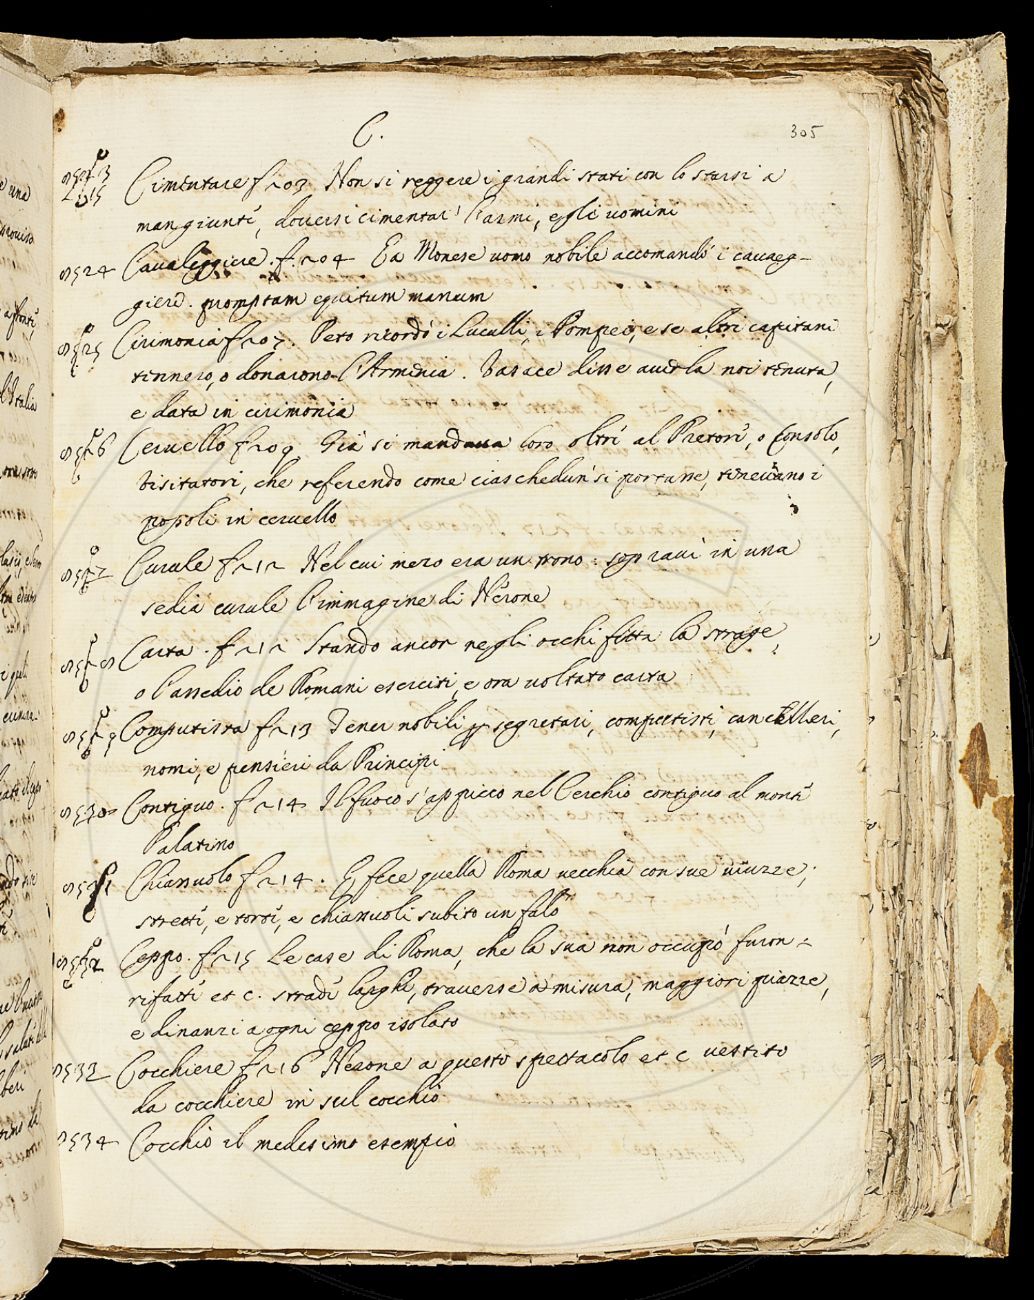 C.
305
Cimentare f 203 Non si reggere i grandi stati con lo starsi a
man giunte, doversi cimentar l'armi, e gli uomini
9524 Cavaleggiere. f. 204 Ea Monese uomo nobile accomandò i cavaeg-
gieri. promptam equitum manum
9525 Cirimonia f 207. Peto ricordò i Luculli, i Pompei, e se altri capitani
tennero, o donarono l'Armenia. Vasace disse averla noi tenuta,
e data in cirimonia
9526 Cervello f 209 Già si mandava loro oltre al Pretore, o Consolo,
Visitatori, che referendo come ciaschedun si portasse, tenevano i
popoli in cervello
9527 Curule f 212 Nel cui mezo era un trono: sopravi in una
sedia curule l'immagine di Nerone
9528 Carta. f 212 Stando ancor negli occhi fitta la strage,
o l'assedio de Romani eserciti, e ora voltato carta
9529 Computista f 213 Tener nobili per segretari, computisti, cancellieri,
nomi, e pensieri da Principi
9530 Contiguo. f 214 Il fuoco s'appicco nel Cerchio contiguo al monte
Palatino
9531 Chiassuolo f 214. E fece quella Roma vecchia con sue viuzze,
strette, e torte, e chiassuoli subito un falò
9532 Ceppo. f 215 Le case di Roma, che la sua non occupò furon
rifatte et c. strade larghe, traverse a misura, maggiori piazze,
e dinanzi a ogni ceppo isolato
9533 Cocchiere f 216 Nerone a questo spettacolo et c vestito
da cocchiere in sul cocchio
9534 Cocchio il medesimo esempio